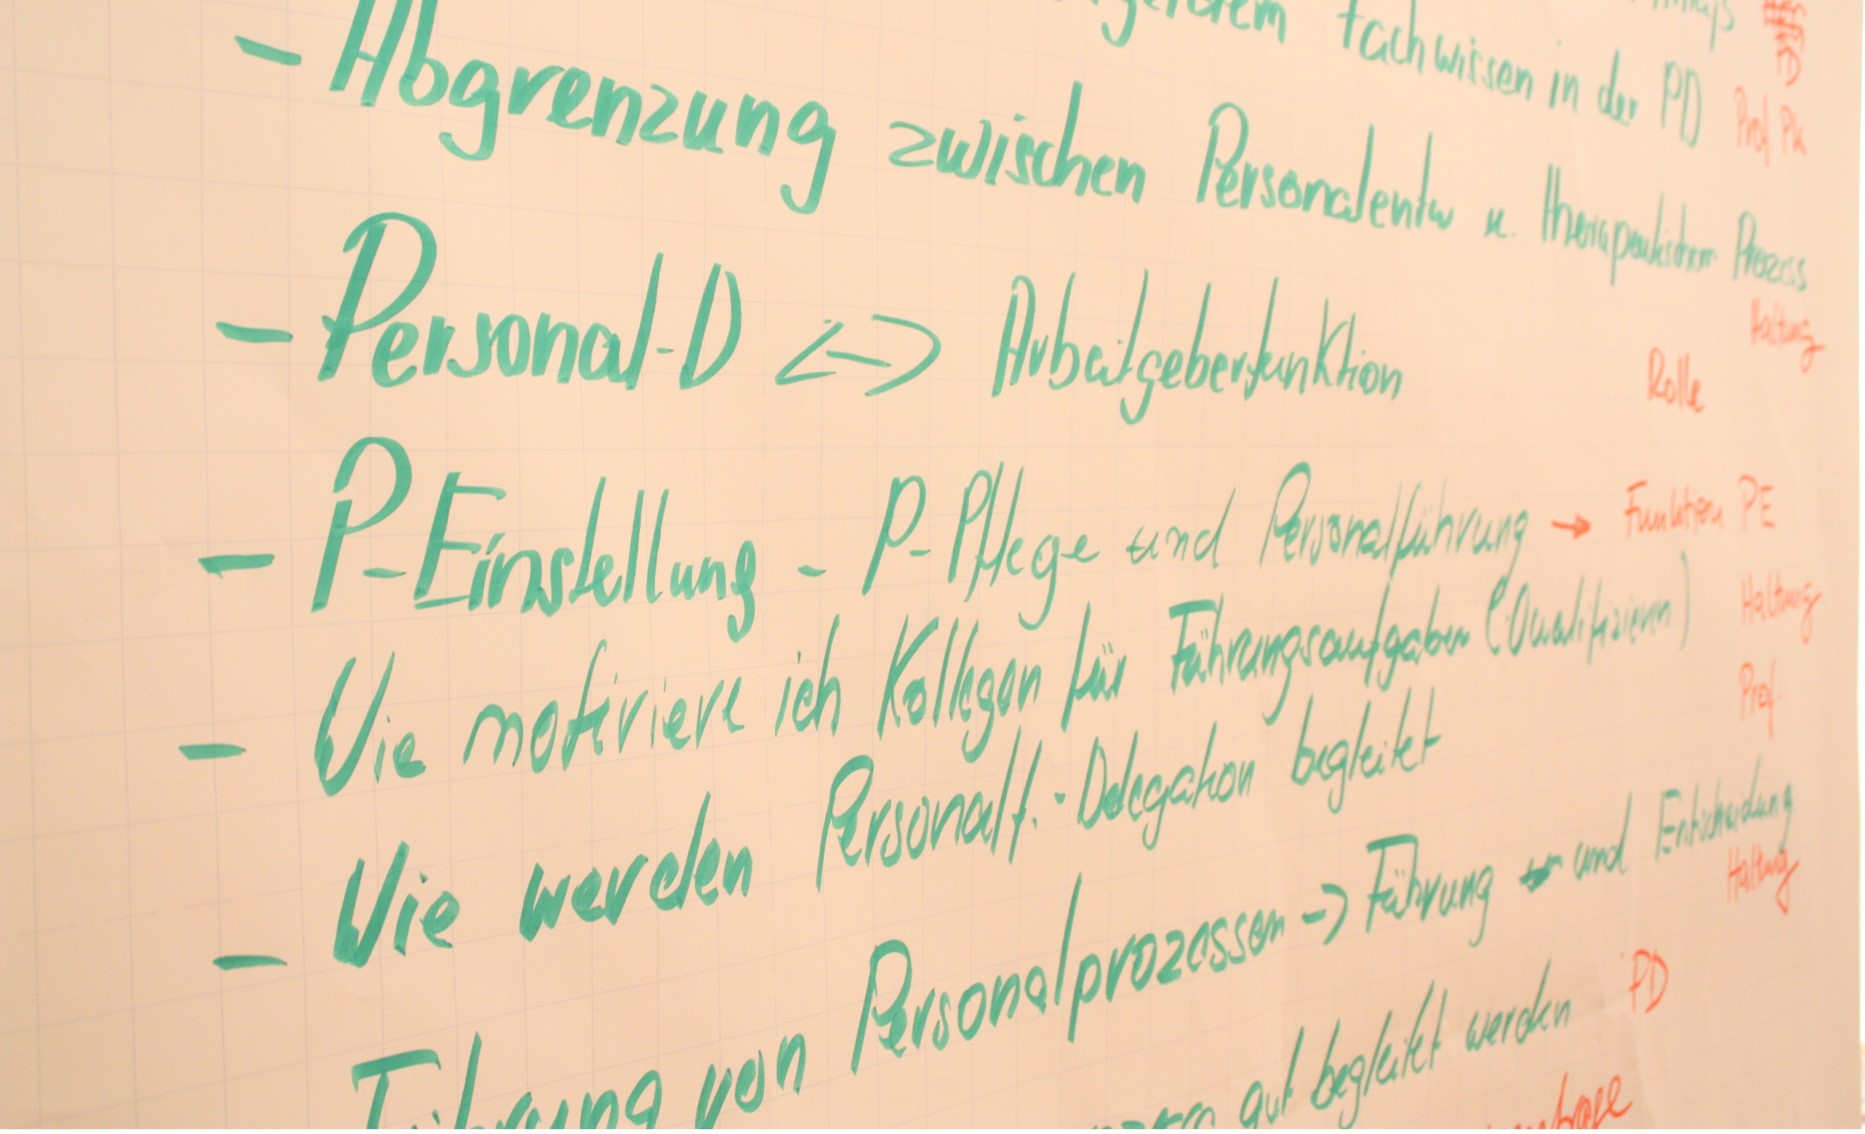 Fachwissen in der PD Prof PK
- Abgrenzung zwischen Personalentw u. therapeutischem Prozess
Haltung
- Personal-D <-> Arbeitgeberfunktion Rolle
- P-Einstellung - P-Pflege und Personalführung → Funktion PE
- Wie motiviere ich Kollegen für Führungsaufgaben (Qualifizieren) Haltung
Prof.
- Wie werden Personalf.-Delegation begleitet
Führung von Personalprozessen -> Führung und Entscheidung
Haltung
gut begleitet werden PD